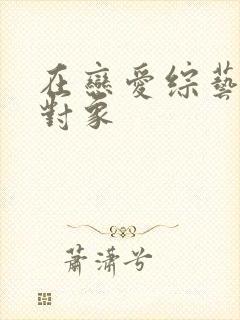 在戀愛綜藝
對象
蕭瀟兮